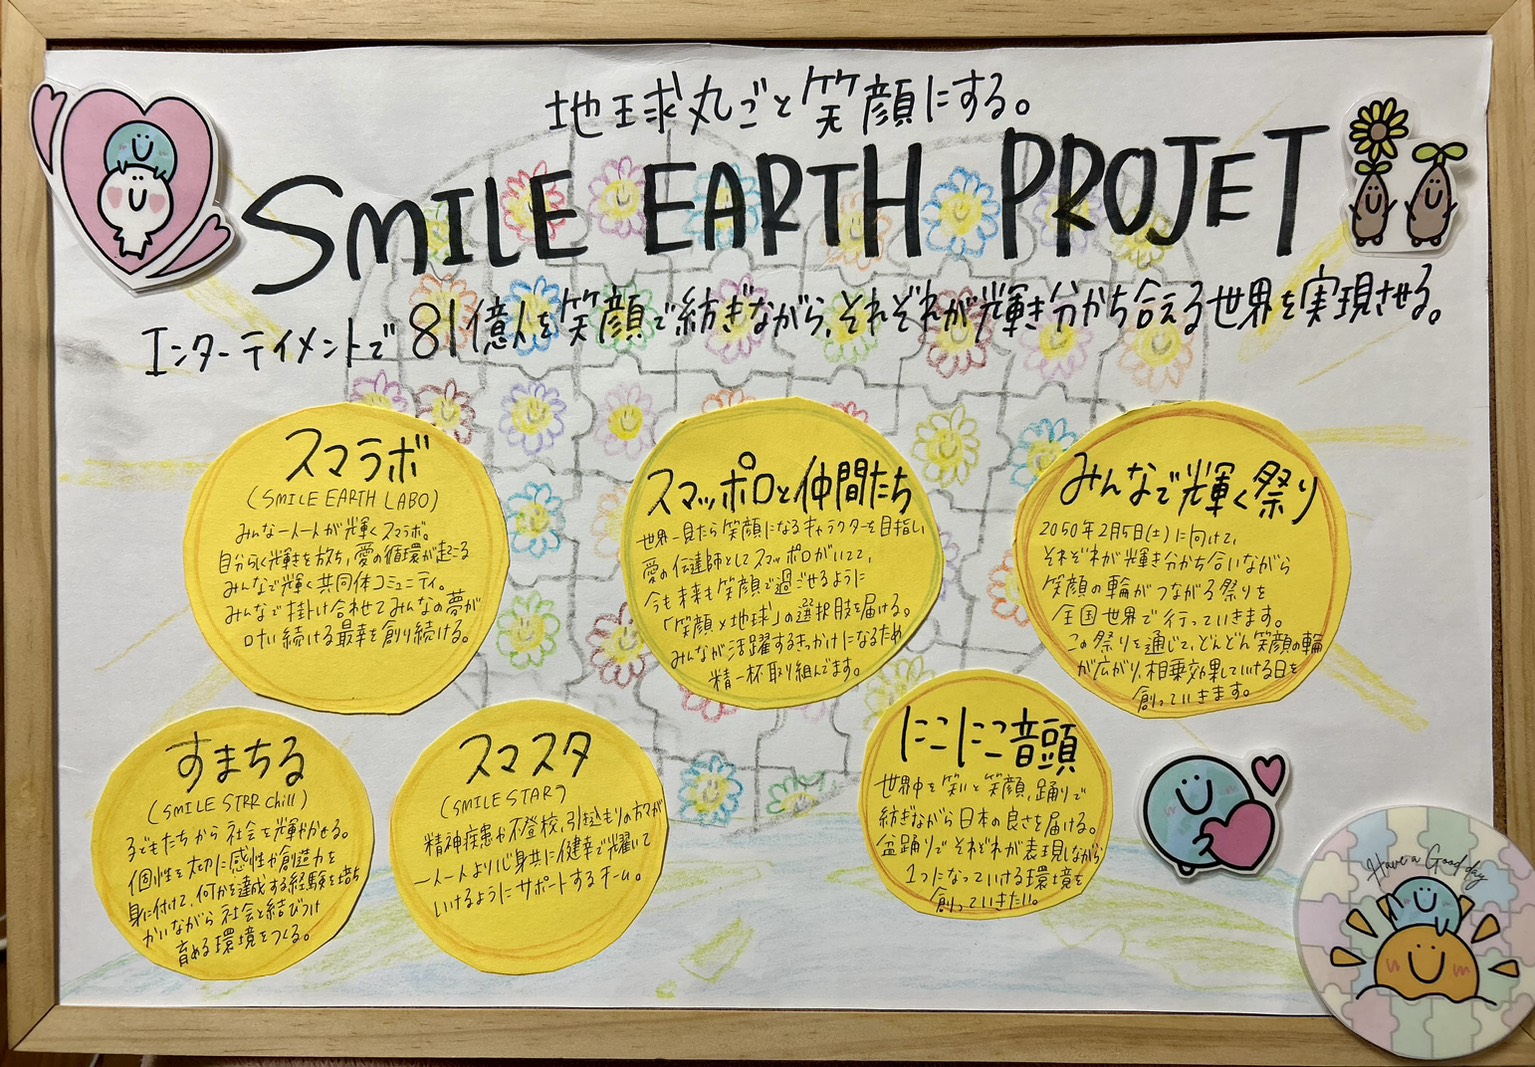 地球丸ごと笑顔にする。
SMILE EARTH PROJET
エンターテイメントで81億人を笑顔で紡ぎながら、それぞれが輝き分かち合える世界を実現させる。
スマラボ
(SMILE EARTH LABO)
みんな一人一人が輝くスマラボ。
自分らしく輝きを放ち、愛の循環が起こる
みんなで輝く共同体コミュニティ。
みんなで掛け合わせてみんなの夢が
叶い続ける最幸を創り続ける。
スマッポロと仲間たち
世界一見たら笑顔になるキャラクターを目指し
愛の伝達師としてスマッポロがいてて、
今も未来も笑顔で過ごせるように
「笑顔×地球」の選択肢を届ける。
みんなが活躍するきっかけになるため
精一杯取り組んでます。
みんなで輝く祭り
2050年2月5日(土)に向けて、
それぞれが輝き分かち合いながら
笑顔の輪がつながる祭りを
全国世界で行っていきます。
この祭りを通じて、どんどん笑顔の輪
が広がり、相乗効果していける日を
創っていきます。
すまちる
(SMILE STRR Chill)
子どもたちから社会を輝かせる。
個性を大切に感性や創造力を
身に付けて、何かを達成する経験を培ち
かいながら社会と結びつけ
育める環境をつくる。
スマスタ
(SMILE STAR)
精神疾患や不登校、引き込もりの方々が
一人一人より心身共に健幸で耀いて
いけるようにサポートするチーム。
にこにこ音頭
世界中を笑いと笑顔、踊りで
紡ぎながら日本の良さを届ける。
盆踊りでそれぞれが表現しながら
1つになっていける環境を
創っていきたい。
Have a Good day